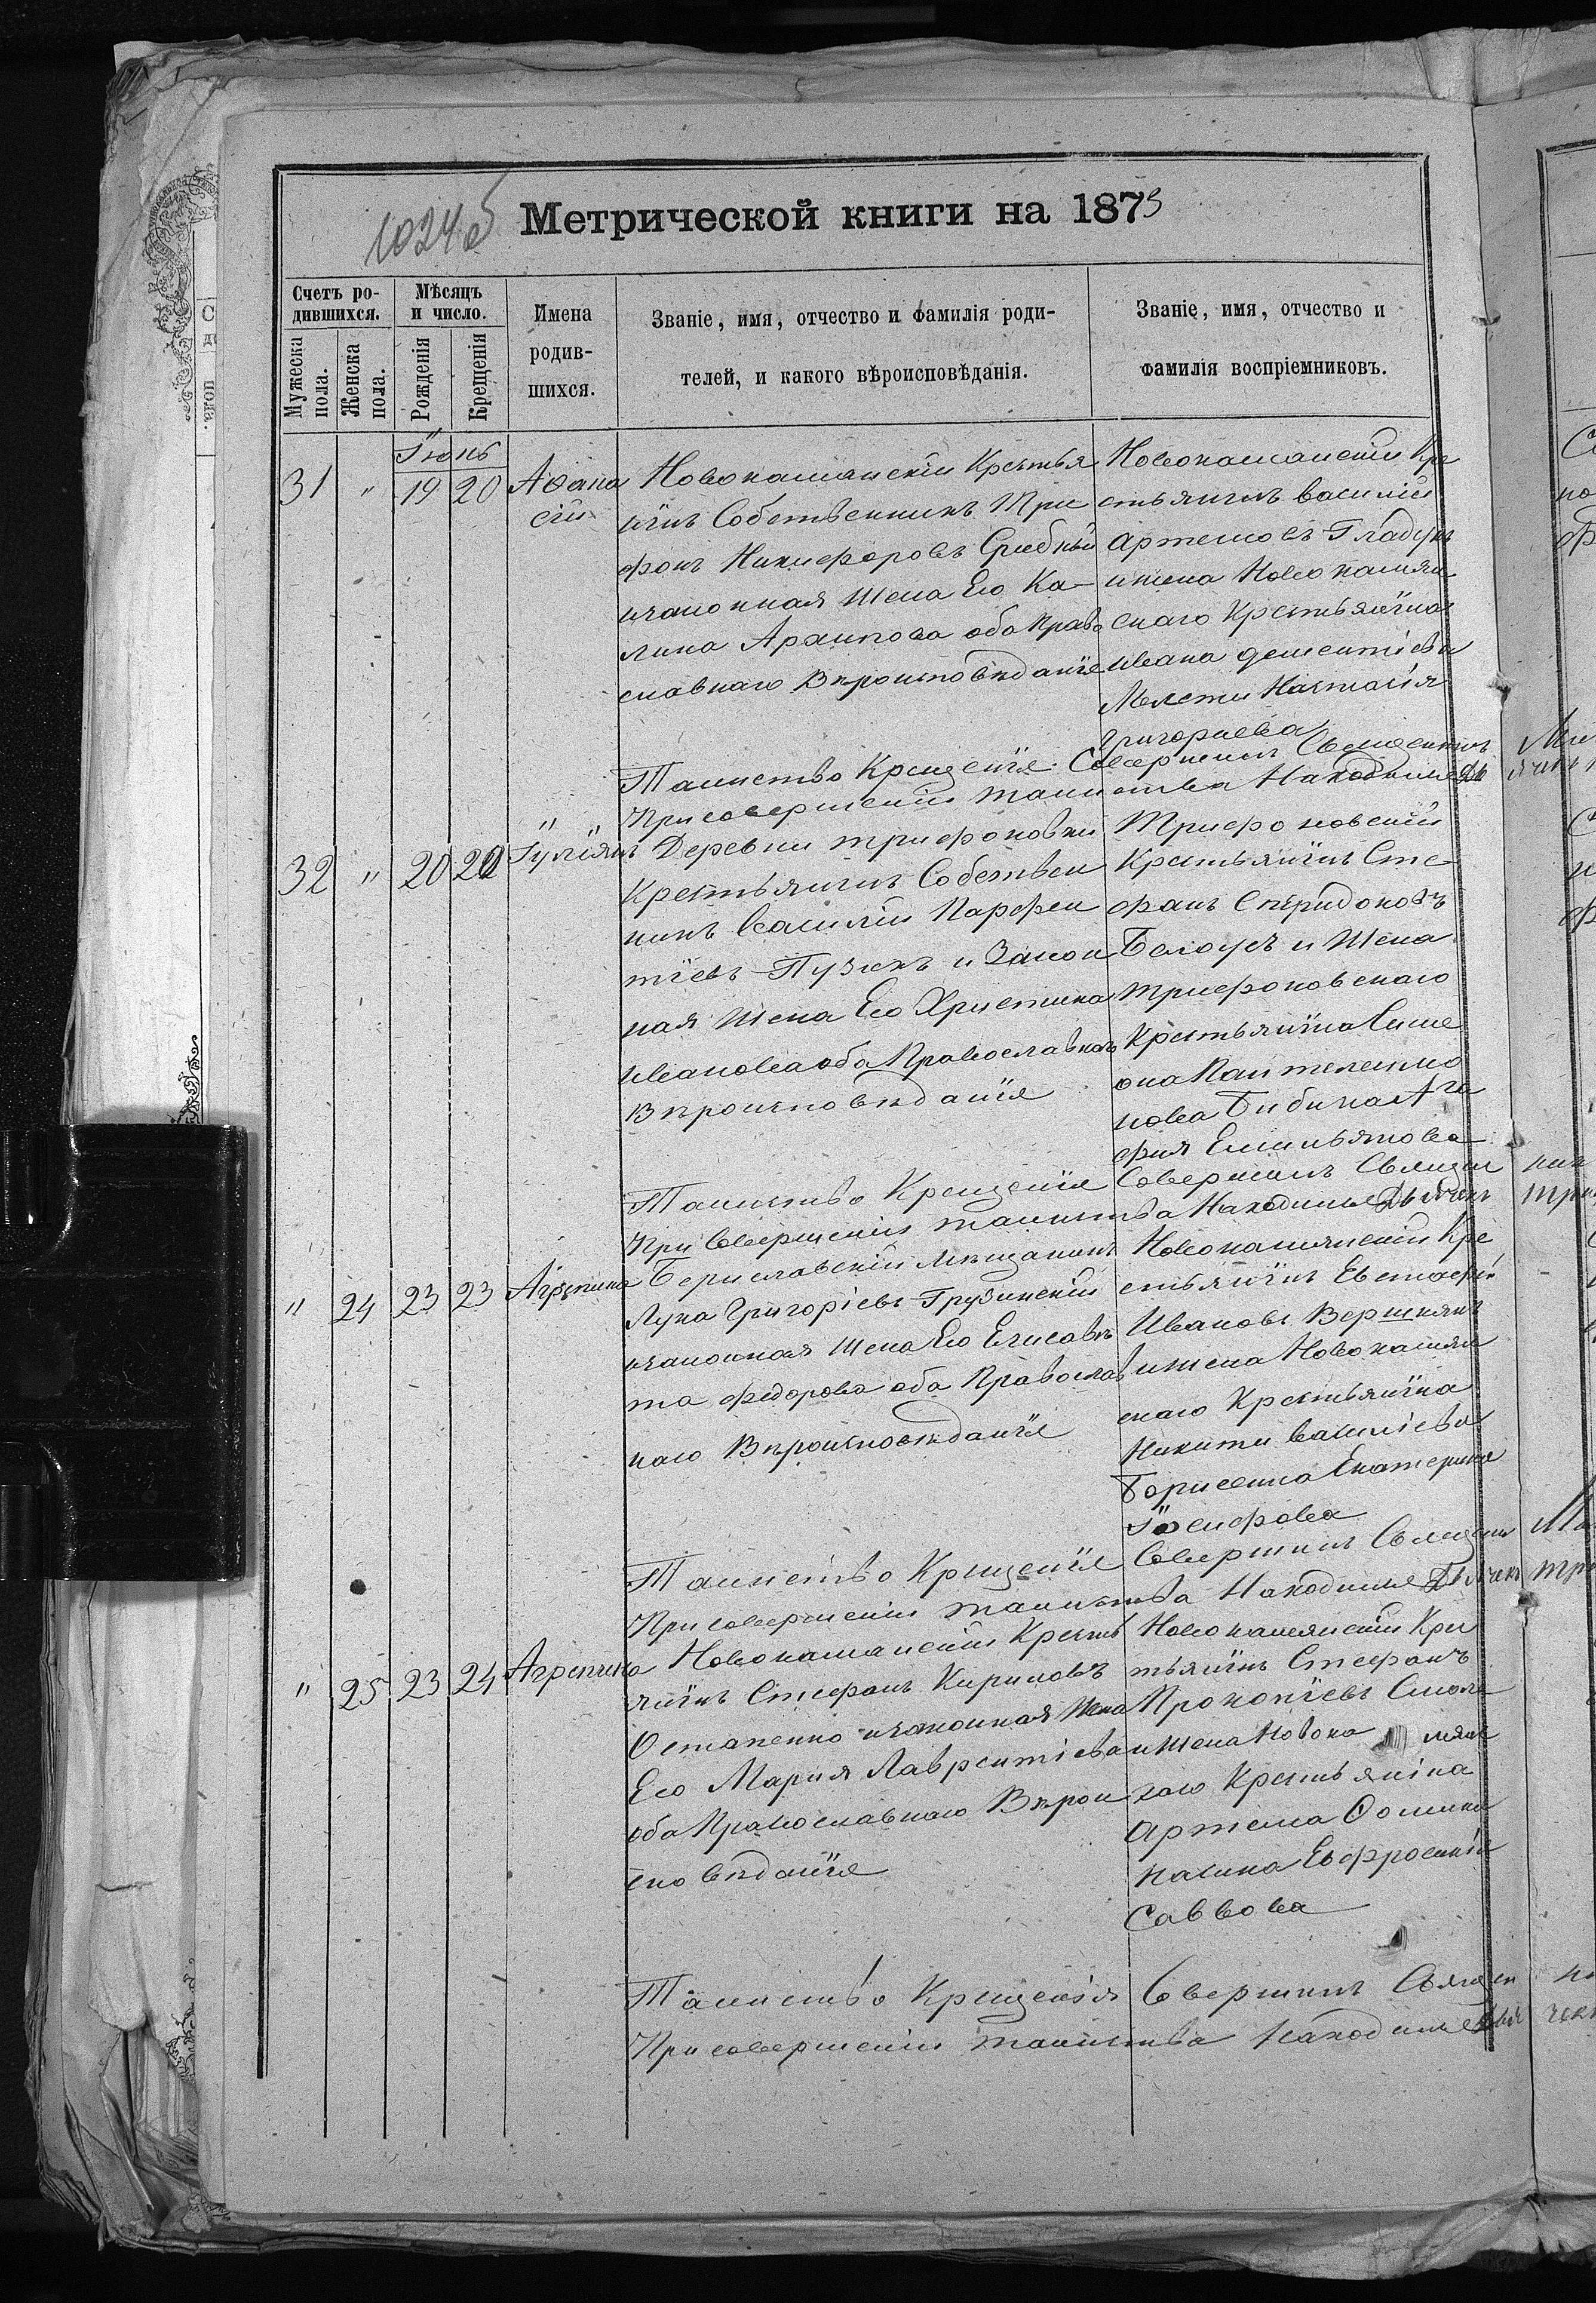 1024 об
Метрической книги на 1873
Счетъ ро-
дившихся.
Мѣсяцъ
и число.
Имена
родив-
шихся.
Званіе, имя, отчество и фамилія роди-
телей, и какого вѣроисповѣданія.
Званіе, имя, отчество и
фамилія воспріемниковъ.
Мужеска
пола.
Женска
пола.
Рожденія
Крещенія
Іюнь
31 " 19 20 Аѳана
сій
Новокаменскій Крестья
нинъ Собственникъ Три
фонъ Никифоровъ Срибный
изаконная жена Его Ка-
лина Архипова оба Право
славнаго Вѣроисповѣданія
Новокаменскій Кре
стьянинъ василій
Артемовъ Гладунъ
ижена Новокамян
скаго Крестьянина
ивана дементіева
Григориева
Таинство Крещенія Совершилъ Священникъ
Присовершеніи таинства Находился
32 " 20 20 Іуліянъ
Деревни трифоновки
Крестьянинъ Собствен
никъ Василій Парфен
тіевъ Пузикъ и Закон
ная жена Его Христина
иванова оба Православнаго
Вѣроисповѣданія
Трифоновскій
Крестьянинъ Сте
фанъ Спиридоновъ
Белоусъ и жена
трифоновскаго
Крестьянина Симе
она Пантелеимо
нова Бибика Ага
фия Емильянова
Таинство Крещенія Совершилъ Священ
При Совершеніи таинства Находился Дьячекъ
" 24 23 23 Агрепина
Бериславскій мѣщанинъ
Лука Григоріевъ Грузинскій
изаконная жена Его Елисаве
та федорова оба Православ
наго Вѣроисповѣданія
Новокаменскій Кре
стьянинъ Евстафій
Ивановъ Вершнякъ
ижена Новокамян
скаго Крестьянина
Никити василіева
Борисенка Екатерина
Іосифова
Таинство Крещенія Совершилъ Священ
Присовершеніи таинства Находился Дьячекъ
" 25 23 24 Агрепина
Новокаменскій Кресть
янинъ Стефанъ Кириловъ
Остапенко изаконная Жена
Его Мария Лаврентіева
оба Православнаго Вѣрои
сповѣданія
Новокамянскій Крес
тьянинъ Стефанъ
Прокопіевъ
ижена Новока мян
каго Крестьяніна
Артема
Евфросинія
Саввова
Таинство Крещенія Совершилъ Священ
Присовершеніи таинства Находился